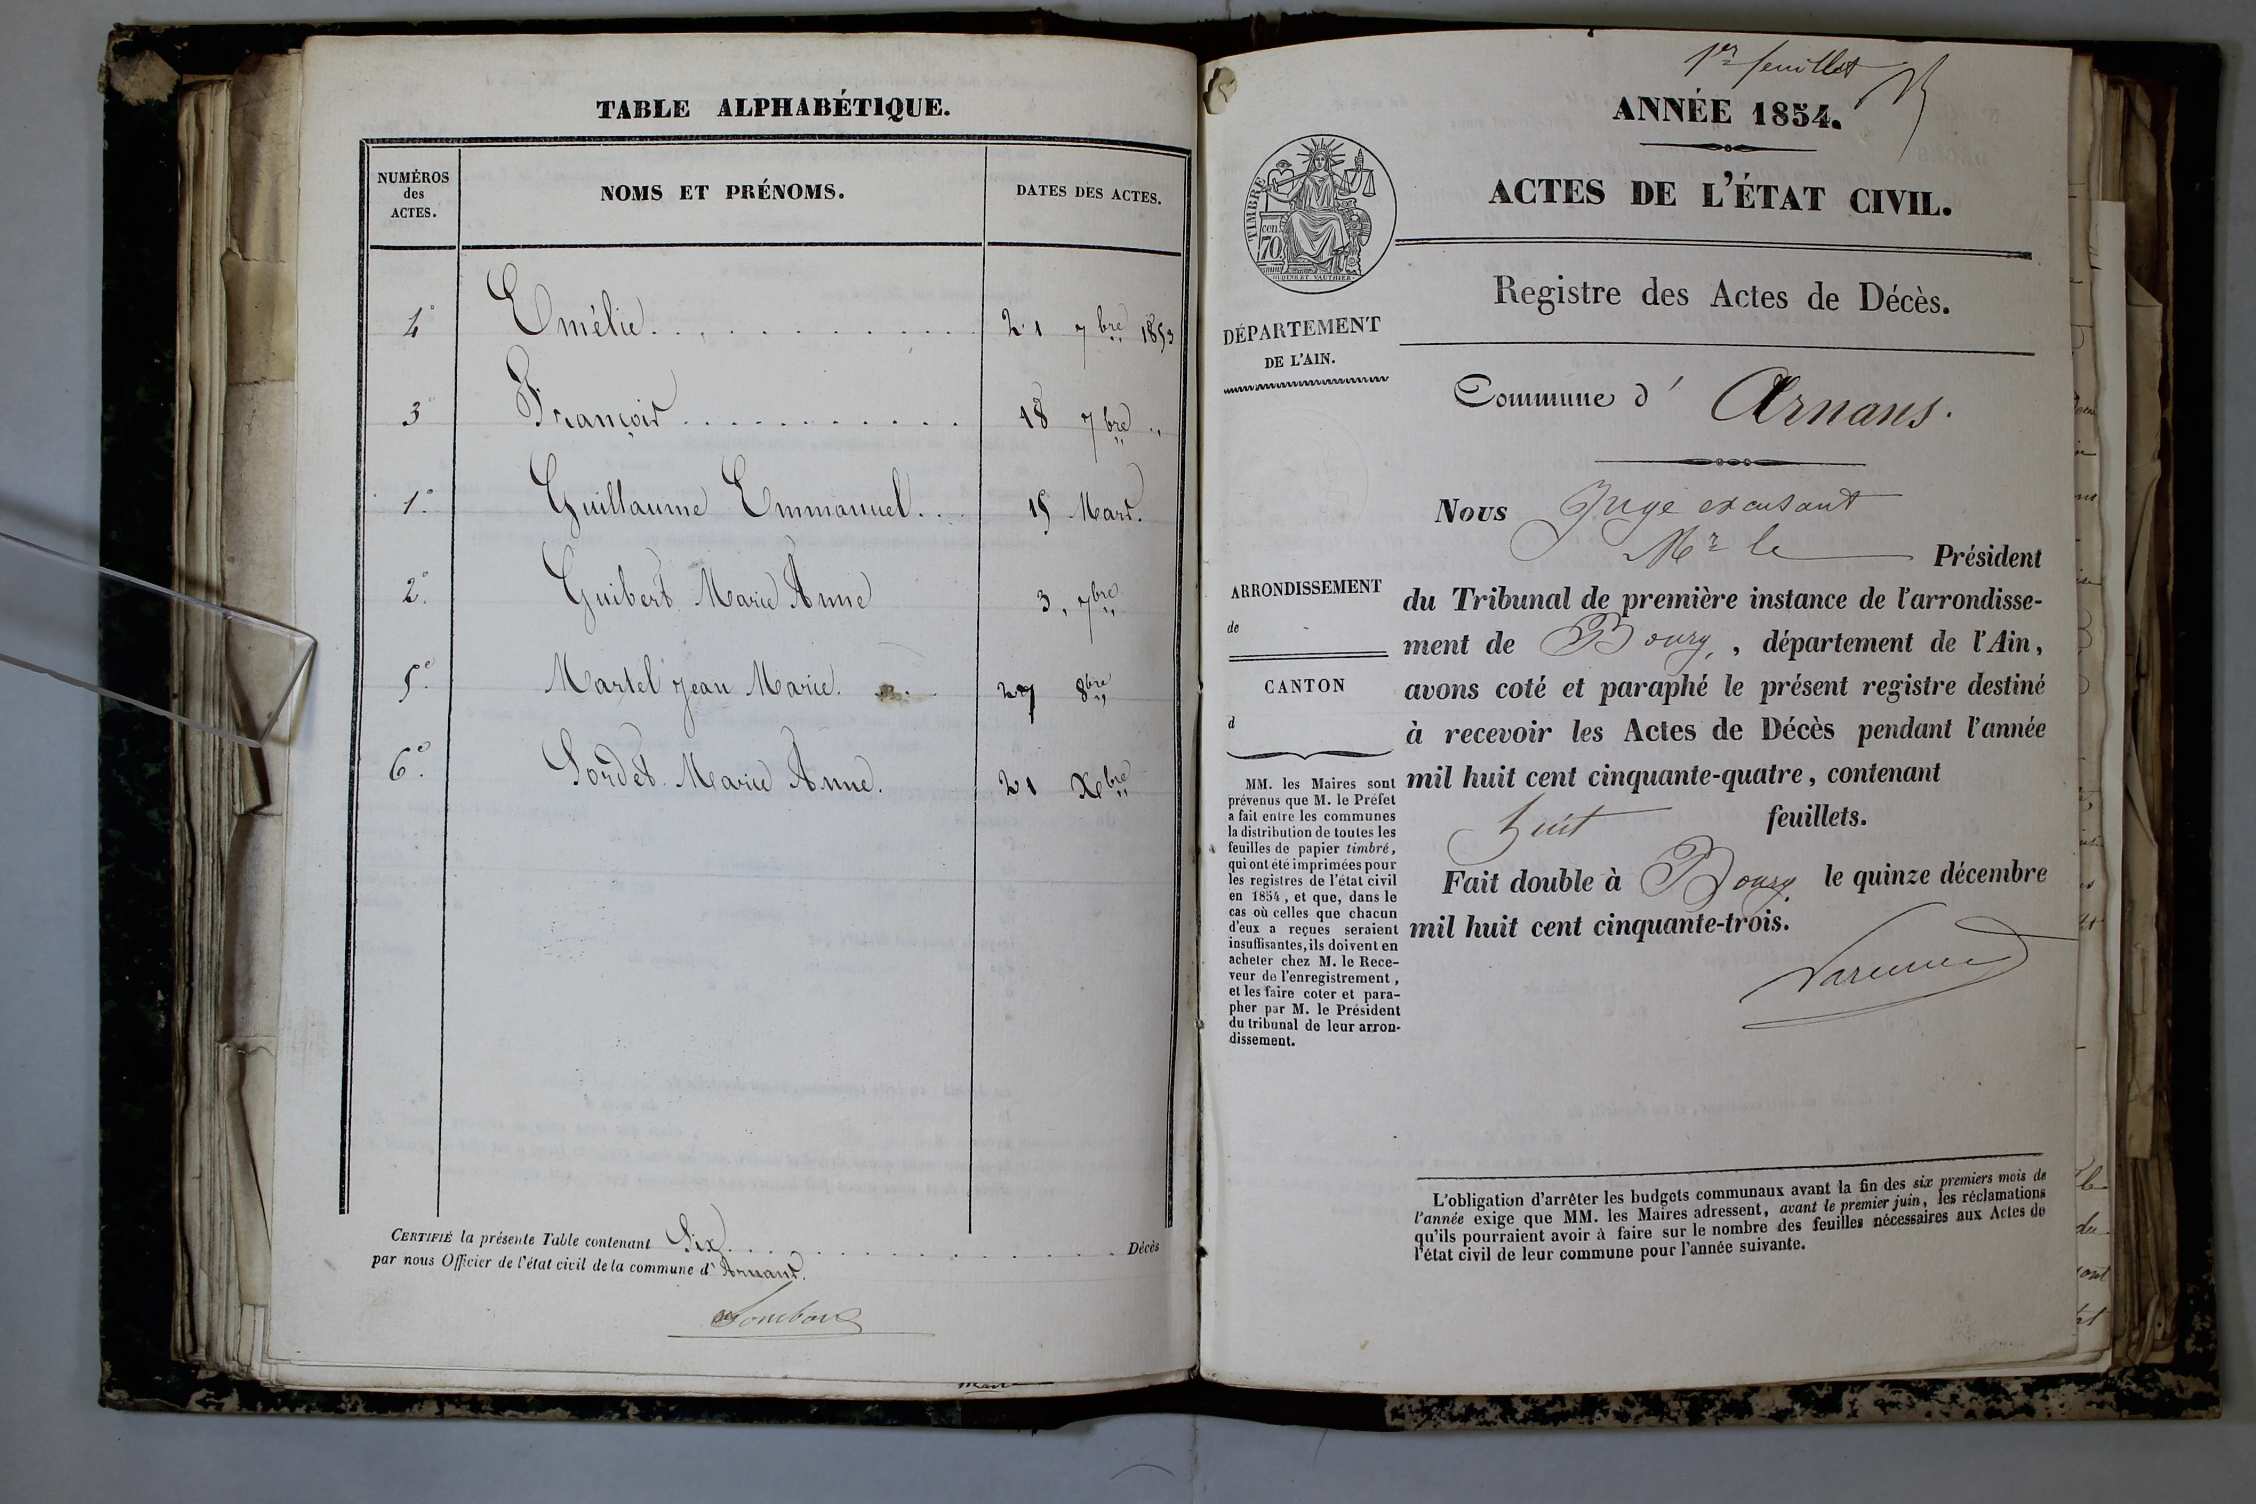 TABLE ALPHABÉTIQUE.
NUMÉROS
des
ACTES.
NOMS ET PRÉNOMS.
DATES DES ACTES.
4° Emélie. 21 7bre 1853
3° François 18 7bre "
1° Guillaume Emmanuel. 15 Mars.
2° Guibert Marie Anne 3, 7bre
5e. Martel Jean Marie. 27 8bre
6e. Sordet Marie Anne. 21 Xbre
CERTIFIÉ la présente Table contenant Six Décès
par nous Officier de l'état civil de la commune d' Arnans.
1er feuillet
ANNÉE 1854.
ACTES DE L'ÉTAT CIVIL.
TIMBRE
70 cen.
Registre des Actes de Décès.
DÉPARTEMENT
DE L'AIN.
Commune d' Arnans.
Nous Juge excusant
Mr le Président
du Tribunal de première instance de l'arrondisse-
ment de Bourg, , département de l'Ain,
avons coté et paraphé le présent registre destiné
à recevoir les Actes de Décès pendant l'année
mil huit cent cinquante-quatre, contenant
huit feuillets.
Fait double à Bourg, le quinze décembre
mil huit cent cinquante-trois.
ARRONDISSEMENT
de
CANTON
d
MM. les Maires sont
prévenus que M. le Préfet
a fait entre les communes
la distribution de toutes les
feuilles de papier timbré,
qui ont été imprimées pour
les registres de l'état civil
en 1854, et que, dans le
cas où celles que chacun
d'eux a reçues seraient
insuffisantes, ils doivent en
acheter chez M. le Rece-
veur de l'enregistrement,
et les faire coter et para-
pher par M. le Président
du tribunal de leur arron-
dissement.
L'obligation d'arrêter les budgets communaux avant la fin des six premiers mois de
l'année exige que MM. les Maires adressent, avant le premier juin, les réclamations
qu'ils pourraient avoir à faire sur le nombre des feuilles nécessaires aux Actes de
l'état civil de leur commune pour l'année suivante.